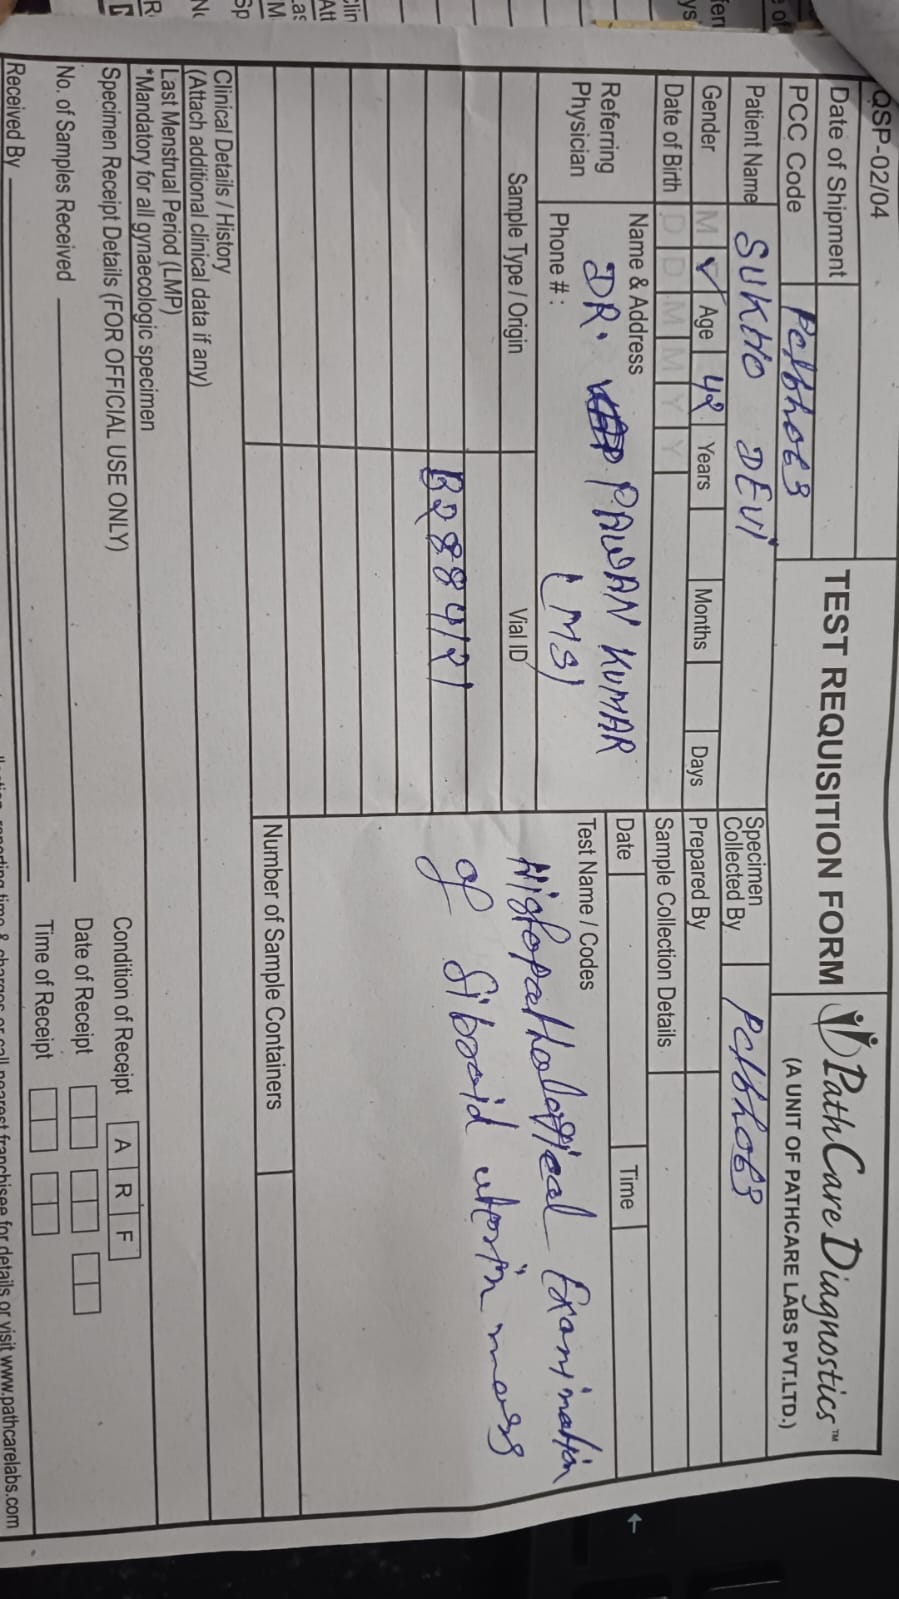 QSP-02/04
Date of Shipment
TEST REQUISITION FORM
PathCare Diagnostics™
(A UNIT OF PATHCARE LABS PVT.LTD.)
PCC Code PCLbho63
Patient Name SUKHO DEVI
Specimen Collected By PCLbho63
Gender M ✓ Age 42 Years Months Days
Prepared By
Date of Birth D D M M Y Y
Sample Collection Details
Referring Physician
Name & Address
DR. PAWAN KUMAR
(MS)
Phone # :
Date Time
Sample Type / Origin Vial ID
B288412
Test Name / Codes
Histopathalogical Examination
of fibroid uterin mass
Number of Sample Containers
Clinical Details / History
(Attach additional clinical data if any)
Last Menstrual Period (LMP)
*Mandatory for all gynaecologic specimen
Specimen Receipt Details (FOR OFFICIAL USE ONLY)
Condition of Receipt A R F
No. of Samples Received
Date of Receipt
Received By
Time of Receipt
reporting time & charges or call nearest franchisee for details or visit www.pathcarelabs.com